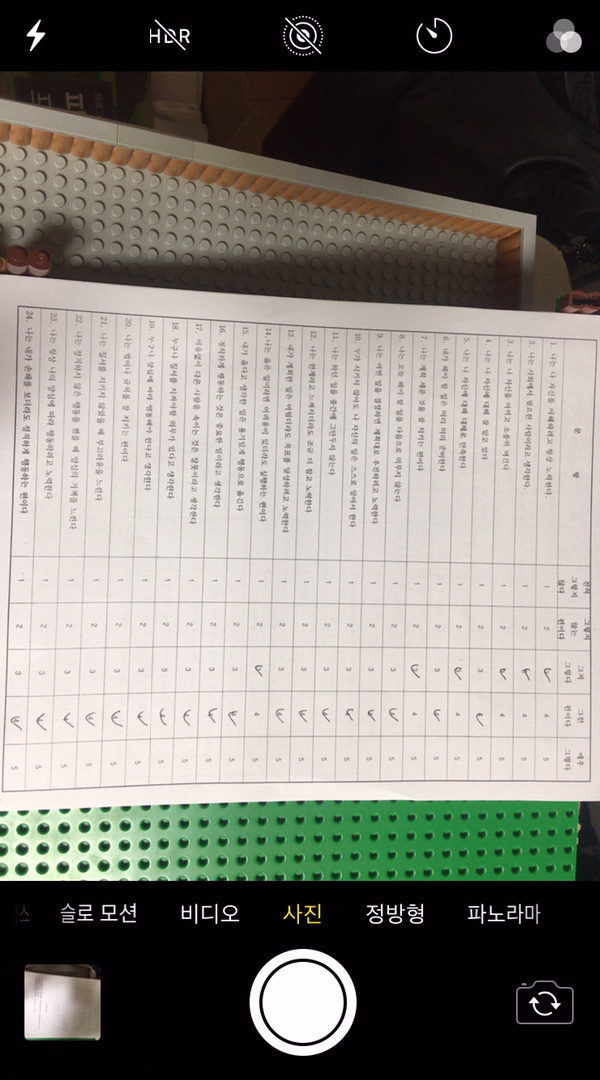 HDR
문 항 전혀 그렇지 않다 그렇지 않는 편이다 그저 그렇다 그런 편이다 매우 그렇다
1. 나는 나 자신을 이해하려고 항상 노력한다. 1 2 4 5
2. 나는 사회에서 필요한 사람이라고 생각한다. 1 2 4 5
3. 나는 나 자신을 아끼고 소중히 여긴다 1 2 4 5
4. 나는 나 자신에 대해 잘 알고 있다 1 2 3 5
5. 나는 나 자신에 대해 대체로 만족한다 1 2 4 5
6. 내가 해야 할 일은 미리 미리 준비한다 1 2 3 5
7. 나는 계획 세운 것을 잘 지키는 편이다 1 2 4 5
8. 나는 오늘 해야 할 일을 다음으로 미루지 않는다 1 2 3 5
9. 나는 어떤 일을 결정하면 계획대로 추진하려고 노력한다 1 2 3 5
10. 누가 시키지 않아도 나 자신의 일은 스스로 알아서 한다 1 2 3 5
11. 나는 하던 일을 중간에 그만두지 않는다 1 2 3 5
12. 나는 한계라고 느껴지더라도 조금 더 참고 노력한다 1 2 3 5
13. 내가 계획한 일은 어렵더라도 목표를 달성하려고 노력한다 1 2 3 5
14. 나는 옳은 일이라면 어려움이 있더라도 실행하는 편이다 1 2 4 5
15. 내가 옳다고 생각한 일은 용기있게 행동으로 옮긴다 1 2 3 5
16. 정직하게 행동하는 것은 중요한 일이라고 생각한다 1 2 3 5
17. 이유없이 다른 사람을 속이는 것은 잘못이라고 생각한다 1 2 3 5
18. 누구나 질서를 지켜야할 의무가 있다고 생각한다 1 2 3 5
19. 누구나 양심에 따라 행동해야 한다고 생각한다 1 2 3 5
20. 나는 법이나 규칙을 잘 지키는 편이다 1 2 3 5
21. 나는 질서를 지키지 않았을 때 부끄러움을 느낀다 1 2 3 5
22. 나는 정직하지 않은 행동을 했을 때 양심의 가책을 느낀다 1 2 3 5
23. 나는 항상 나의 양심에 따라 행동하려고 노력한다 1 2 3 5
24. 나는 내가 손해를 보더라도 정직하게 행동하는 편이다 1 2 3 5
슬로 모션 비디오 사진 정방형 파노라마